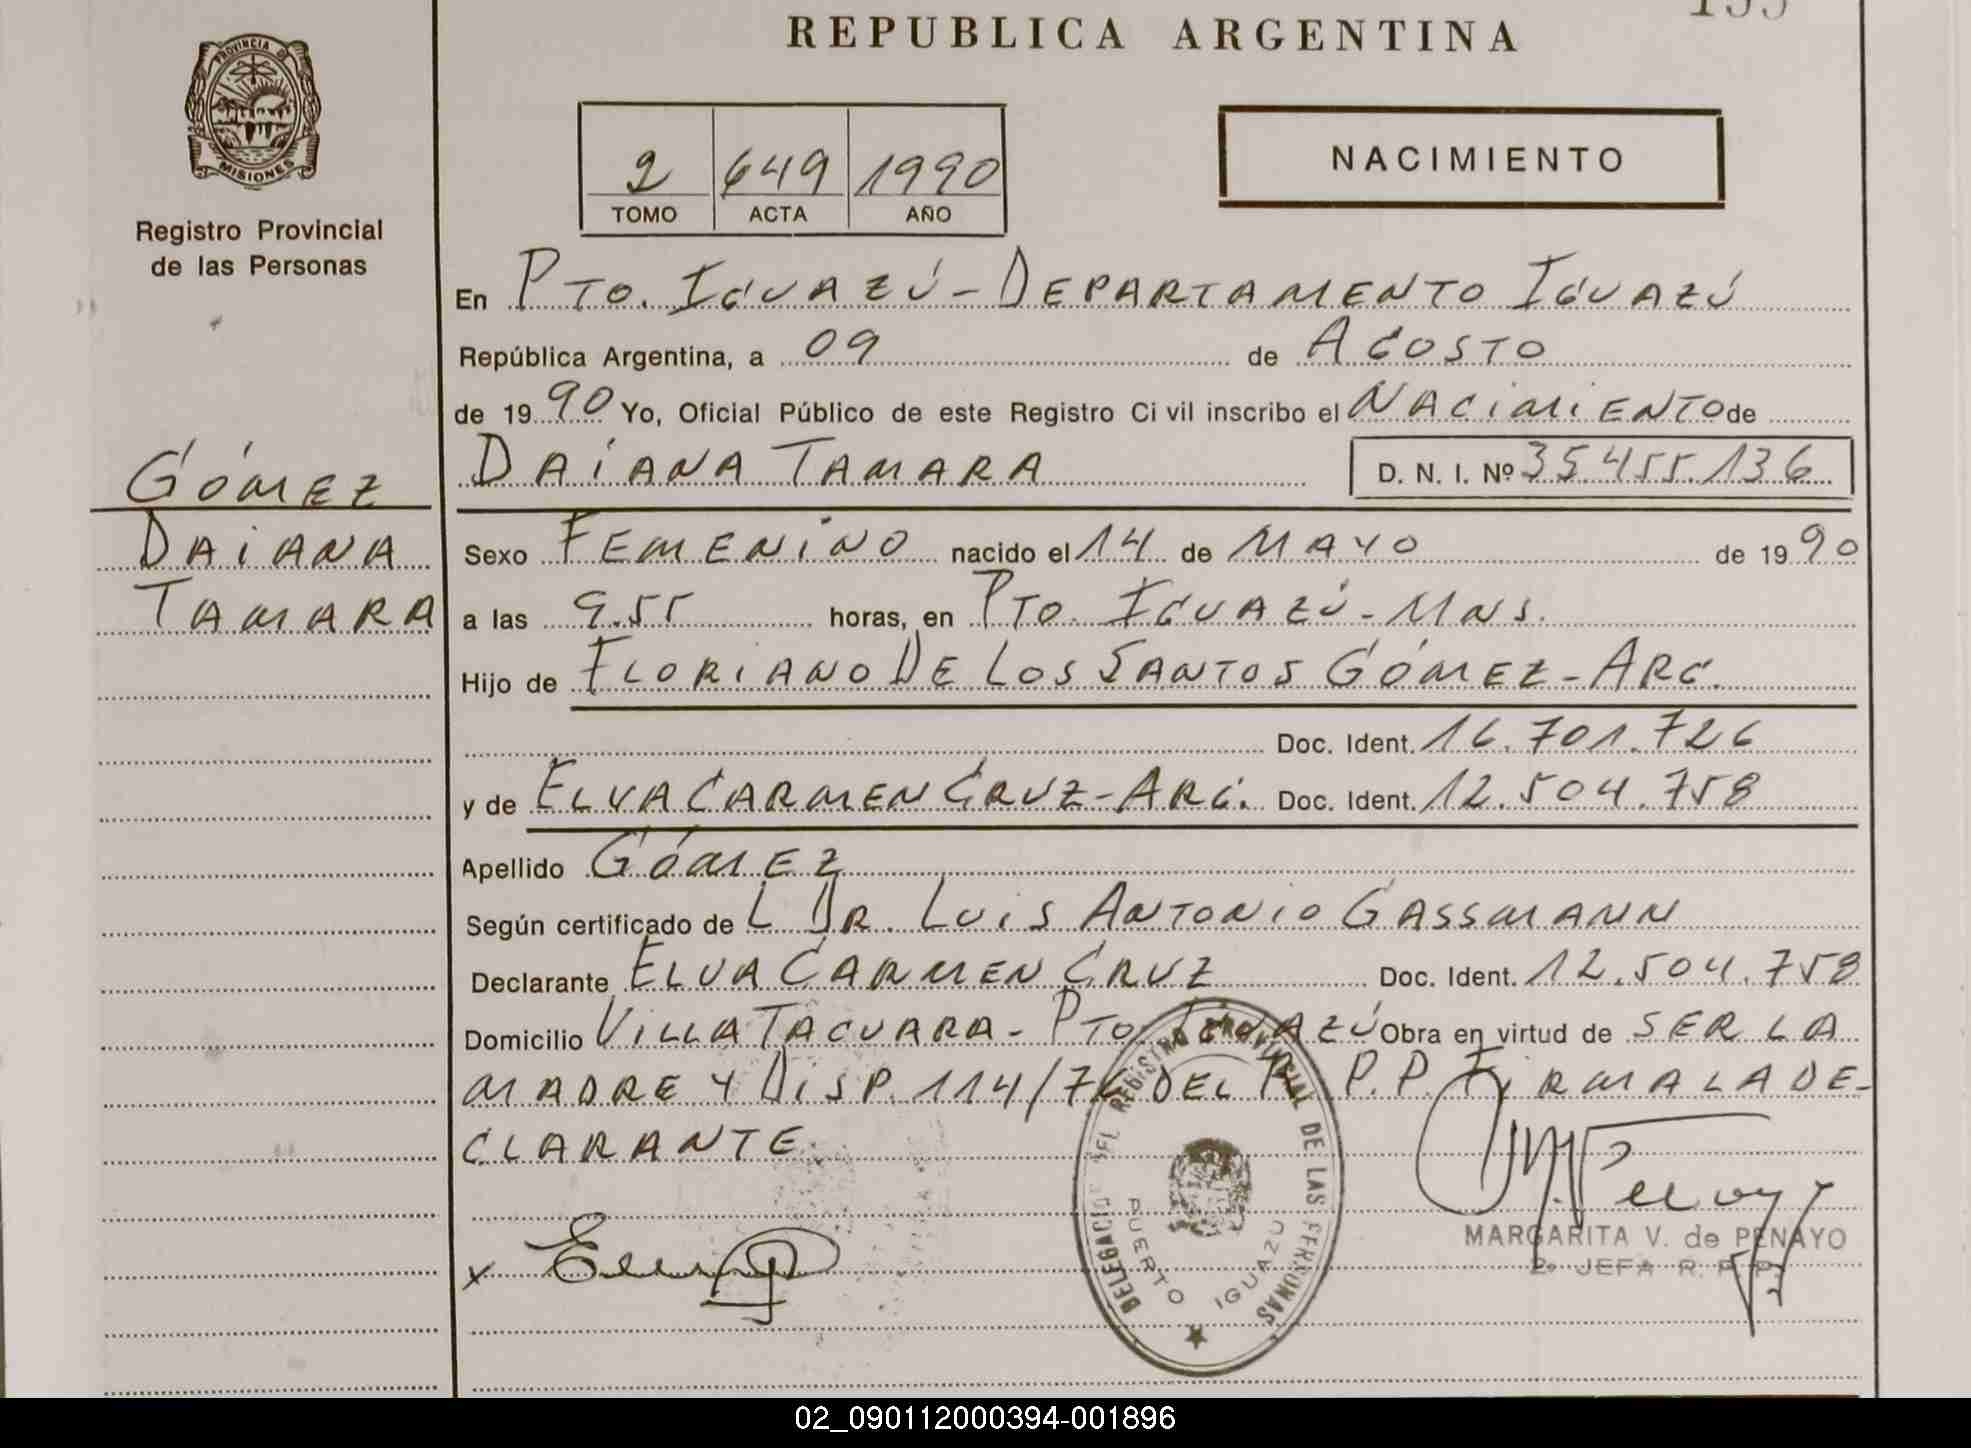 REPUBLICA ARGENTINA
PROVINCIA DE
MISIONES
Registro Provincial
de las Personas
2 649 1990
TOMO ACTA AÑO
NACIMIENTO
En Pto. Iguazú - Departamento Iguazú
República Argentina, a 09 de Agosto
de 1990 Yo, Oficial Público de este Registro Civil inscribo el Nacimiento de
Gómez
Daiana Tamara D. N. I. Nº 35.455.136
Daiana
Tamara
Sexo Femenino nacido el 14 de Mayo de 1990
a las 9.55 horas, en Pto. Iguazú - Mns.
Hijo de Floriano De Los Santos Gómez - Arg.
Doc. Ident. 16.701.726
y de Elva Carmen Cruz - Arg. Doc. Ident. 12.504.758
Apellido Gómez
Según certificado de L Dr. Luis Antonio Gassmann
Declarante Elva Carmen Cruz Doc. Ident. 12.504.758
Domicilio Villa Tacuara - Pto. Iguazú Obra en virtud de ser la
madre y Disp. 114/76 del R. P.P. Firma la de-
clarante.
DELEGACION DEL REGISTRO PROVINCIAL DE LAS PERSONAS
PUERTO IGUAZU
x
MARGARITA V. de PENAYO
2º JEFA R. P. P.
02_090112000394-001896